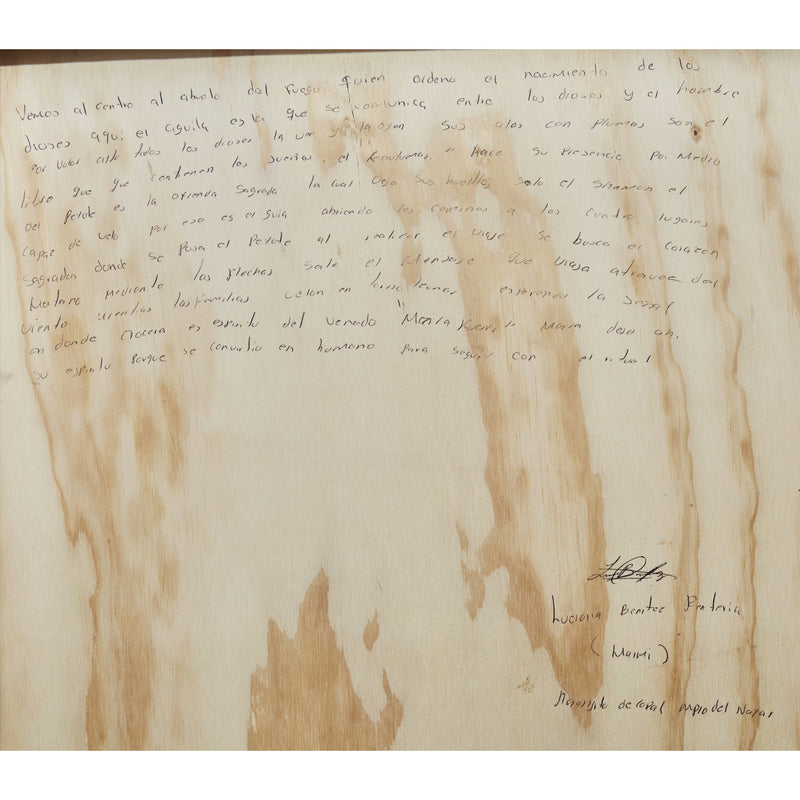 Vemos al centro al abuelo del fuego quien ordeno el nacimiento de los
dioses aqui el aguila es la que se comunica entre los dioses y el hombre
por volar alto todos los dioses la ven y la oyen sus alas con plumas son el
libro que que contienen los sueños. el "kaulumas" hace su presencia por medio
del Peyote es la ofrenda sagrada la cual deja sus huellas solo el shaman el
capaz de velo por eso es el guia abriendo los caminos a los cuatro lugares
sagrados donde se posa el Peyote al realizar el viaje se busca el corazon
Materno mediante las flechas sale el mensaje que viaja atravez del
viento mientras las familias velan en esperando la señal
en donde es espiritu del venado "Marra " Marra dejo ahi.
su espiritu porque se convirtio en humano para seguir con el ritual
Luciana Benitez Renteria
(Maimi)
Naranjito de copal mpio del Nayar